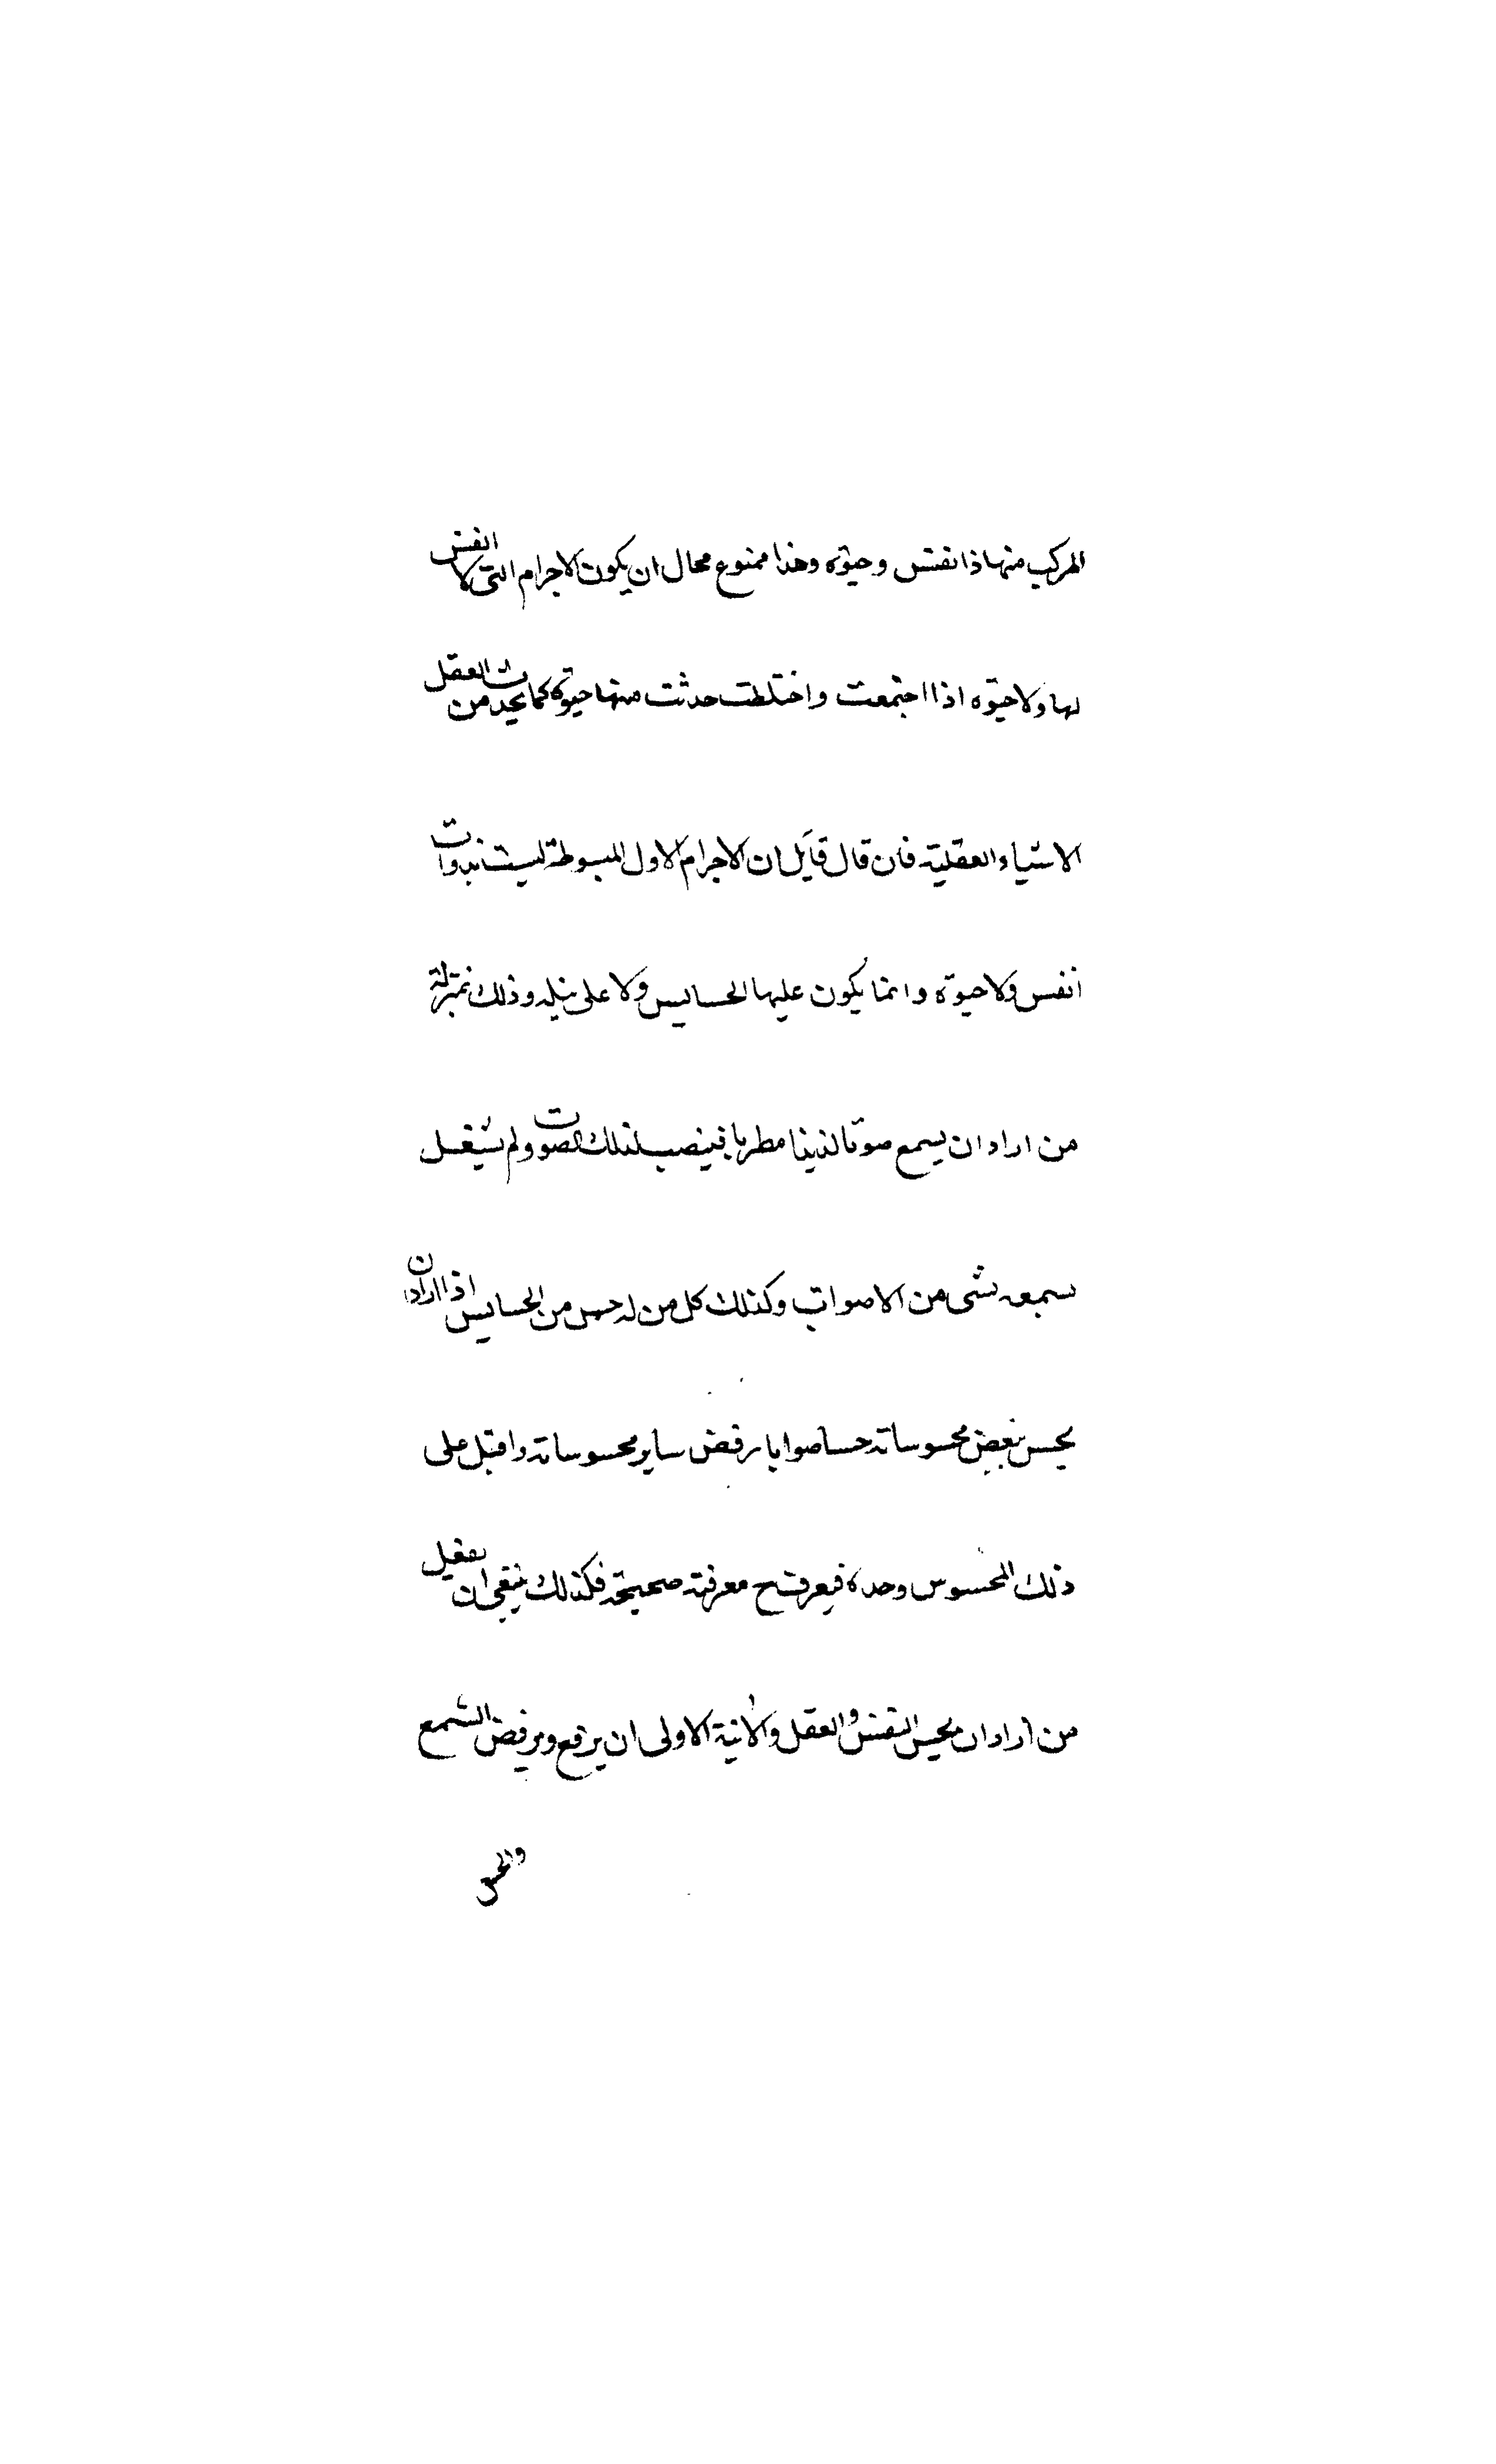 المركب منها ذا نفس وحيوة وهذا ممنوع محال ان يكون الاجرام التى لا انفس
لها ولا حيوة اذا اجتمعت واختلطت حدثت منها حيوة كما يحدث من العقل
الاشياء العقلية فان قال قايل ان الاجرام الاول المبسوطة ليست بذوات
انفس ولا حيوة وانما يكون عليها الحسايس ولا على نيله وذلك بمنزلة
من اراد ان يسمع صوتا لذيذا مطربا فينصب لذلك الصوت ولم يشغل
سمعه بشى من الاصوات وكذلك كل من له حس من الحسايس اذا اراد ان
يحس ببعض محسوساته حسا صوابا رفض ساير محسوساته واقبل على
ذلك المحسوس وحده فيعرفه ح معرفة صحيحة فكذلك ينبغى ان يفعل
من اراد ان يحس النفس والعقل والانية الاولى ان يرفع ويرفض السمع
والحس